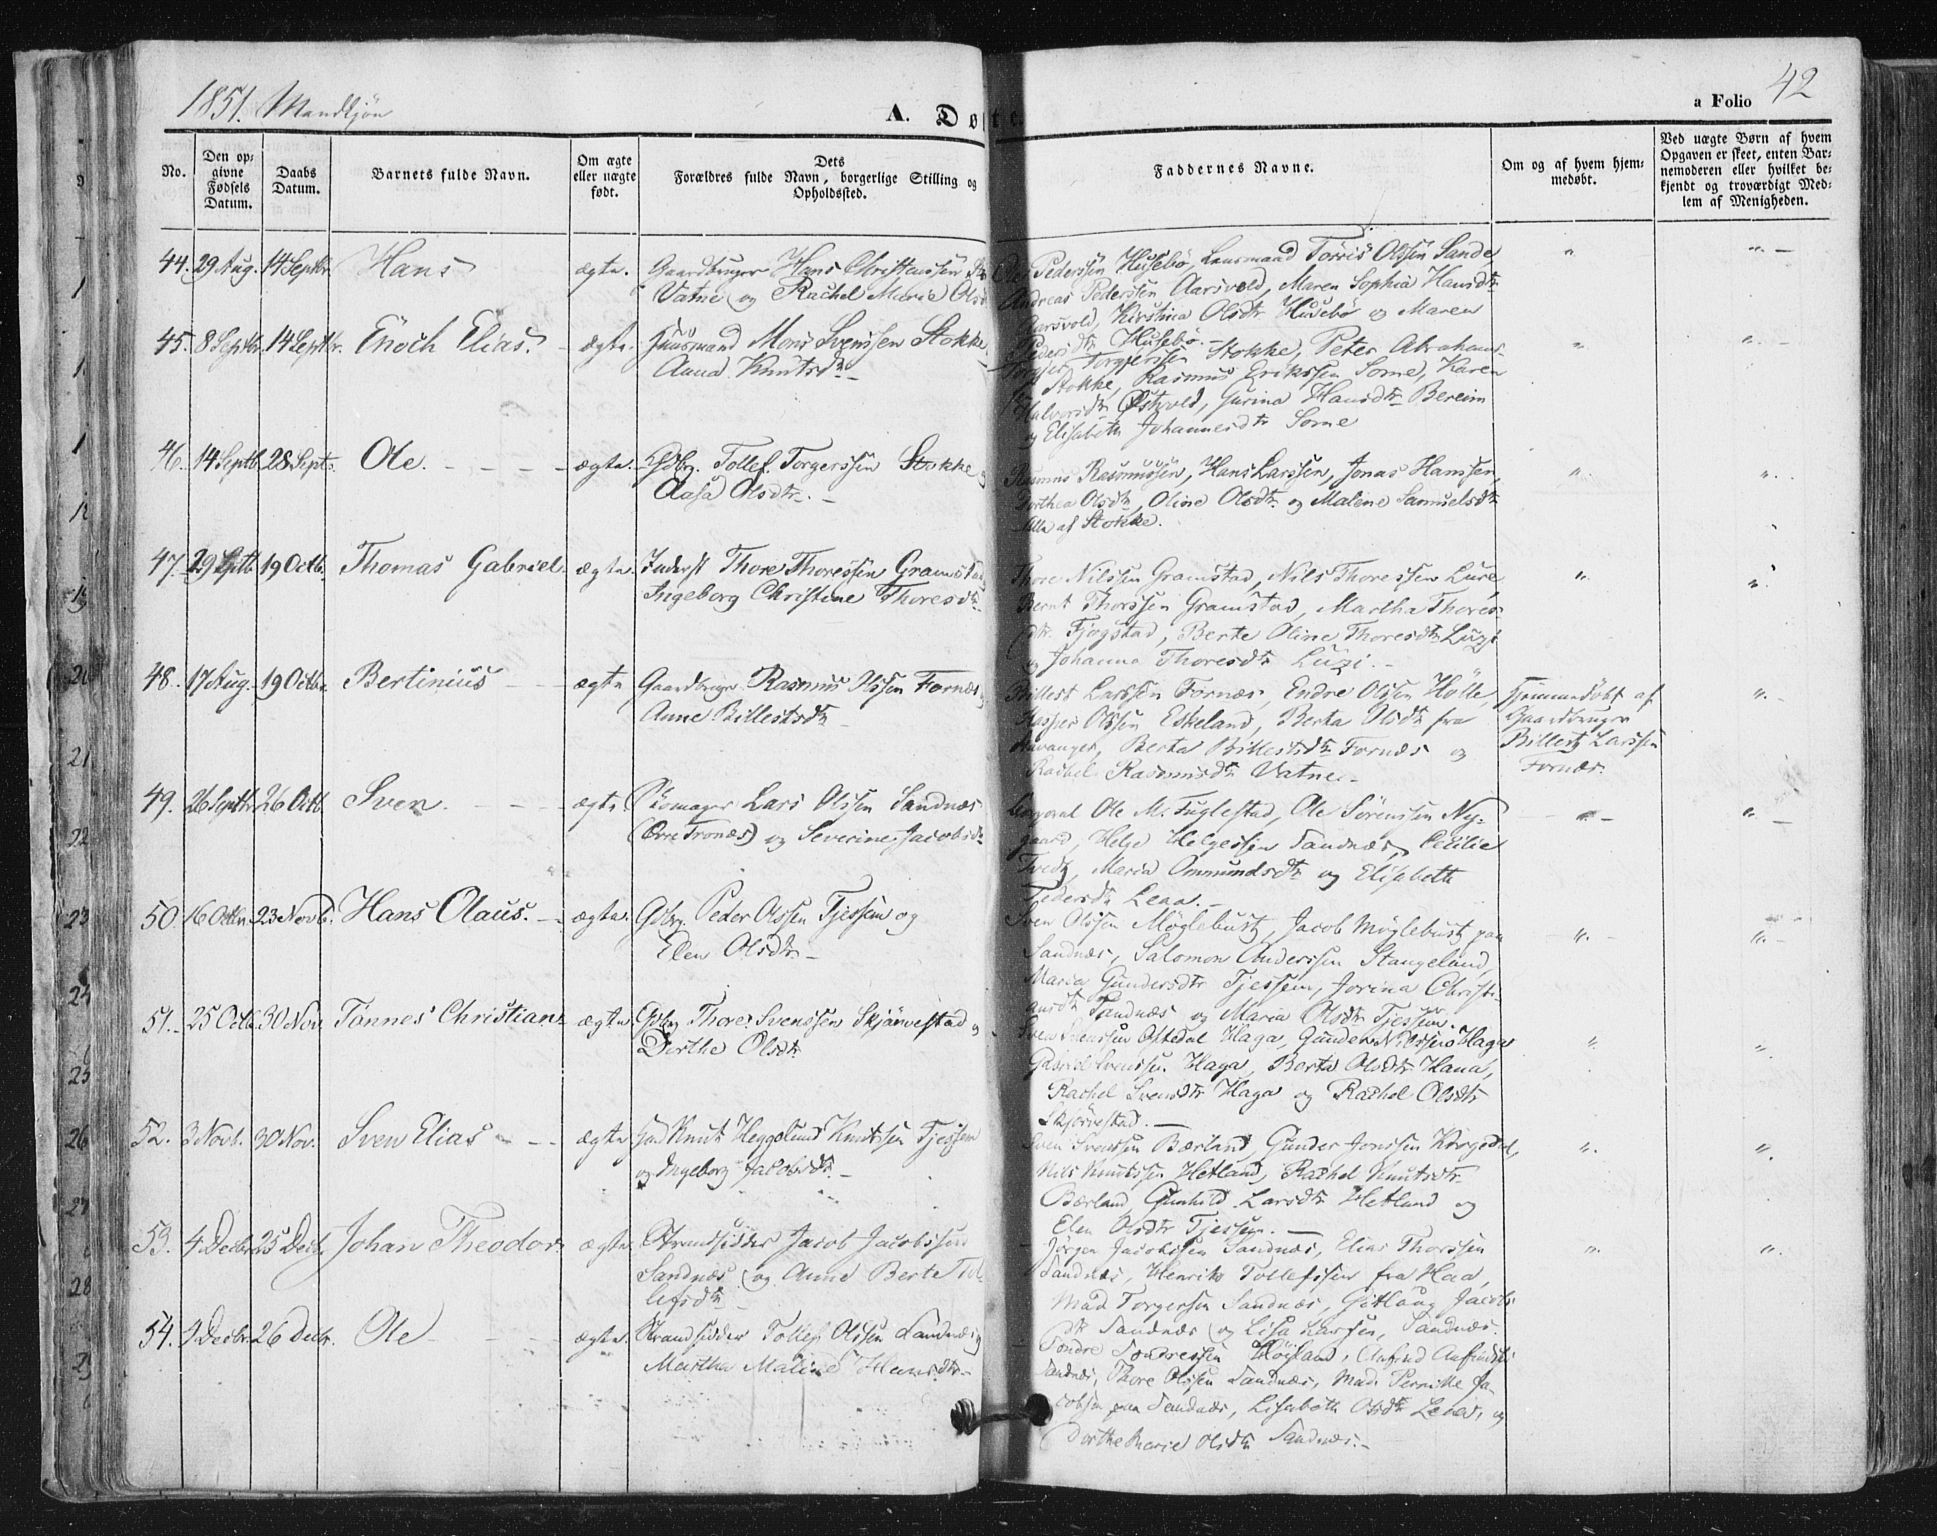 1851. Mandkjøn
A. Døbte.
a Folio 42
No.
Den opgivne Fødsels Datum.
Daabs Datum.
Barnets fulde Navn.
Om ægte eller uægte født.
Dets Forældres fulde Navn, borgerlige Stilling og Opholdssted.
Faddernes Navne.
Om og af hvem hjemmedøbt.
Ved uægte Børn af hvem Opgaven er skeet, enten Barnemoderen eller hvilket bekjendt og troværdigt Medlem af Menigheden.
44. 29 Aug. 14 Septbr. Hans ægte. Gaardbruger Hans Christenssen
Vatne og Rachel Marie Olsd
Pederssen Husebø, Lensmand Torris Olssen Sande,
Andreas Pederssen Aarsvold, Maren Sophia Hansdtr
Aarsvold, Kirstina Olsdtr Husebø og Maren
Pedersdtr Husebø. -
45. 8 Septbr. 14 Septbr. Enoch Elias. ægte. Huusmand Mons Svenssen Stokke
Anna Knutsdtr
Torgier Torgierssen Stokke, Peter Abrahams-
Stokke, Rasmus Erikssen Somme, Karen
Halvorsdtr Østvold, Gurina Hansdtr Bereim
og Elisabeth Johannesdtr Somme
46. 14 Septb. 28 Sept. Ole. ægte. Gdbr. Tollef Torgerssen Stokke
Aasa Olsdtr. -
Rasmus Rasmussen, Hans Larssen, Jonas Hanssen,
Dorthea Olsdtr, Oline Olsdtr og Malene Samuelsdtr
Alle af Stokke.
47. 29 Septb. 19 Octb. Thomas Gabriel ægte. Inderst Thore Thoressen Gramstad
Ingeborg Christine Thoresdtr
Thore Nilssen Gramstad, Nils Thoressen Lure,
Bernt Thorssen Gramstad, Martha Thores-
dtr. Fjogstad, Berte Oline Thoresdtr Luzi
og Johanna Thoresdtr Luzi. -
48. 17 Aug. 19 Octbr. Bertinius ægte Gaardbruger Rasmus Olssen Fornæs
Anne Billestsdtr
Billest Larssen Fornæs, Endre Olssen Hølle,
Kasper Olssen Eskeland, Berta Olsdtr fra
Stavanger, Berta Billestsdtr Fornæs og
Rachel Rasmusdtr Vatne. -
Hjemmedøbt af
Gaardbruger
Billest Larssen
Fornæs.
49. 26 Septbr 26 Octb Sven. ægte Skomager Lars Olssen Sandnæs
(Øvre Tronæs) og Severine Jacobsdtr
Corporal Ole M. Fuglestad, Ole Sørenssen Ny-
gaard, Helge Helgessen Sandnæs, Cecilie
Tvedt, Maria Ommundsdtr og Elisabeth
Pedersdtr Leaa. -
50 16 Octbr. 23 Novb. Hans Olaus. ægte. Gdbr. Peder Olssen Tjessem og
Elen Olsdtr
Sven Olssen Møglebust, Jacob Møglebust paa
Sandnæs, Salomon Anderssen Stangeland,
Maria Gundersdtr Tjessem, Jorina Christi-
ansdtr Sandnæs og Maria Olsdtr Tjessem.
51. 25 Octb. 30 Nov. Tønnes Christian ægte Gdbr Thore Svenssen Skjærvestad og
Dorthe Olsdtr
Sven Svenssen Oftedal Haga, Gunder Nilssen Haga
Gabriel Svenssen Haga, Berta Olsdtr Hana,
Rachel Svensdtr Haga og Rachel Olsdtr
Skjørvestad. -
52. 3 Novb. 30 Nov. Sven Elias ægte Knut Heggelund Knutssen Tjessem
og Ingeborg Jacobsdtr
Sven Svenssen Bærland, Gunder Jonssen Kongsdal,
Nils Knutssen Hetland, Rachel Knutsdtr
Bærland, Gunhild Larsdtr Hetland og
Elen Olsdtr Tjessem. -
53. 4 Decbr 25 Decb. Johan Theodor ægte Strandsidder Jacob Jacobssen
Sandnæs og Anne Berte Tol-
lefsdtr
Jørgen Jacobssen Sandnæs, Elias Thorssen
Sandnæs, Henrik Tollefssen fra Haa,
Mad Torgersen Sandnæs, Gitlaug Jacobs
dtr Sandnæs og Lisa Larsen, Sandnæs.
54. 9 Decbr. 26 Decbr. Ole ægte. Strandsidder Tollef Olssen Sandnæs og
Martha Maline Hansdtr
Sondre Sondressen Høiland,
Sandnæs, Thore Olssen Sandnæs, Mad. Pernille Ja-
cobsen paa Sandnæs, Lisabeth Olsdtr og
Dorthe Marie Olsdtr Sandnæs. -